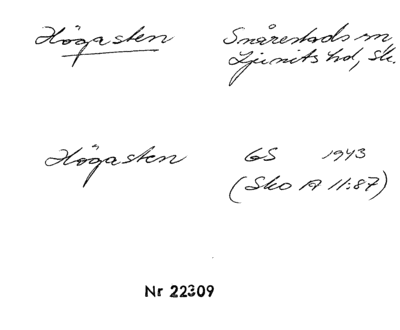 Högasten Snårestads sn
Ljunits hd, Sk.
Högasten GS 1943
(Sko A 11:87)
Nr 22309